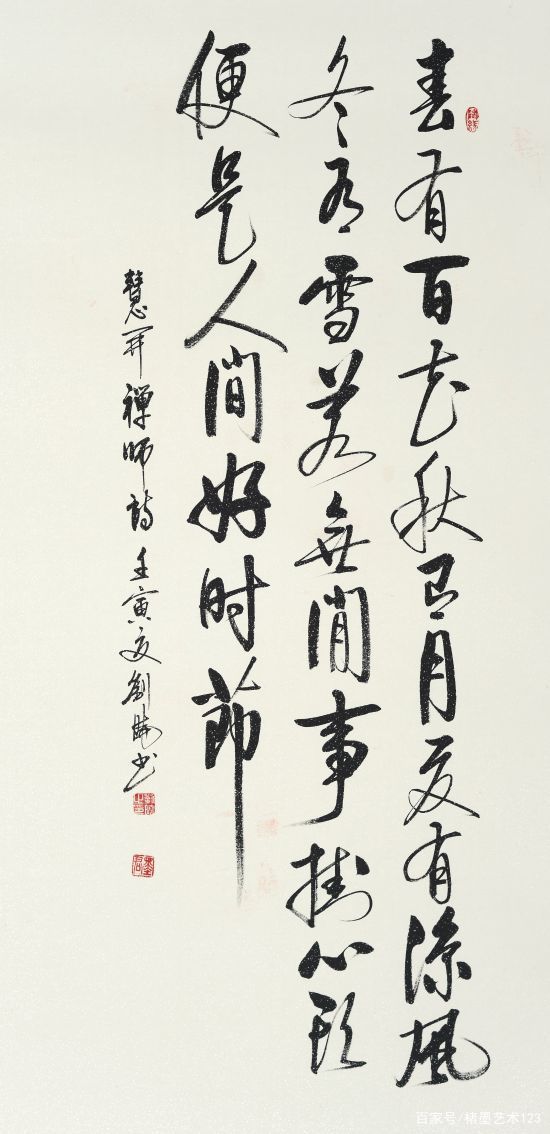 春有百花秋有月夏有涼風
冬有雪若無閒事掛心頭
便是人間好时節
慧開禅師詩壬寅夏劉書
百家号/楮墨艺术123